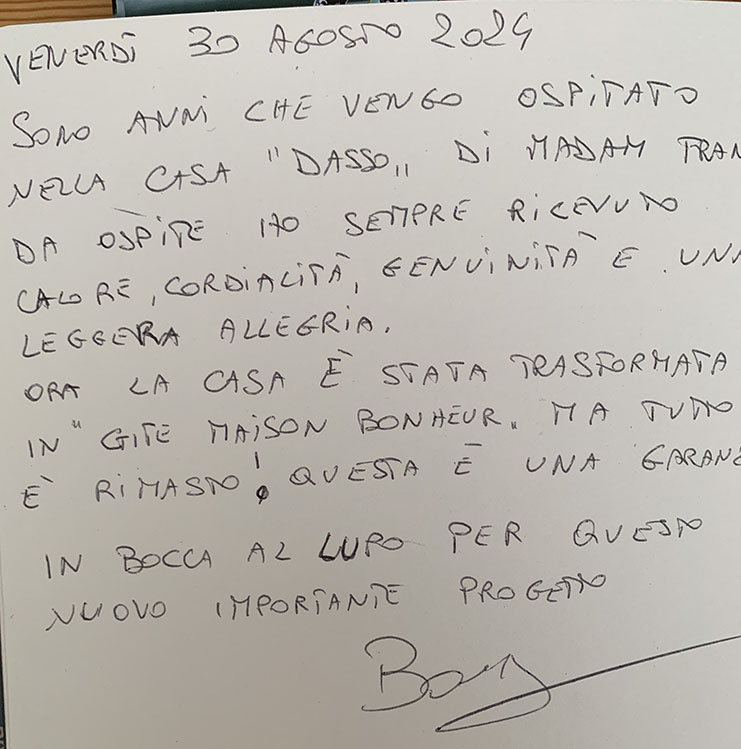 VENERDÌ 30 AGOSTO 2024
SONO ANNI CHE VENGO OSPITATO
NELLA CASA "DASSO„ DI MADAM TRAN
DA OSPITE HO SEMPRE RICEVUTO
CALORE, CORDIALITÀ, GENUINITÀ E UNA
LEGGERA ALLEGRIA.
ORA LA CASA È STATA TRASFORMATA
IN "GITE MAISON BONHEUR„ MA TUTTO
È RIMASTO! QUESTA È UNA GARANZ
IN BOCCA AL LUPO PER QUESTO
NUOVO IMPORTANTE PROGETTO